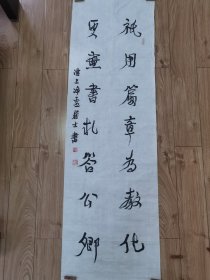 祇用篇章為教化
更無書札答公卿
居士書